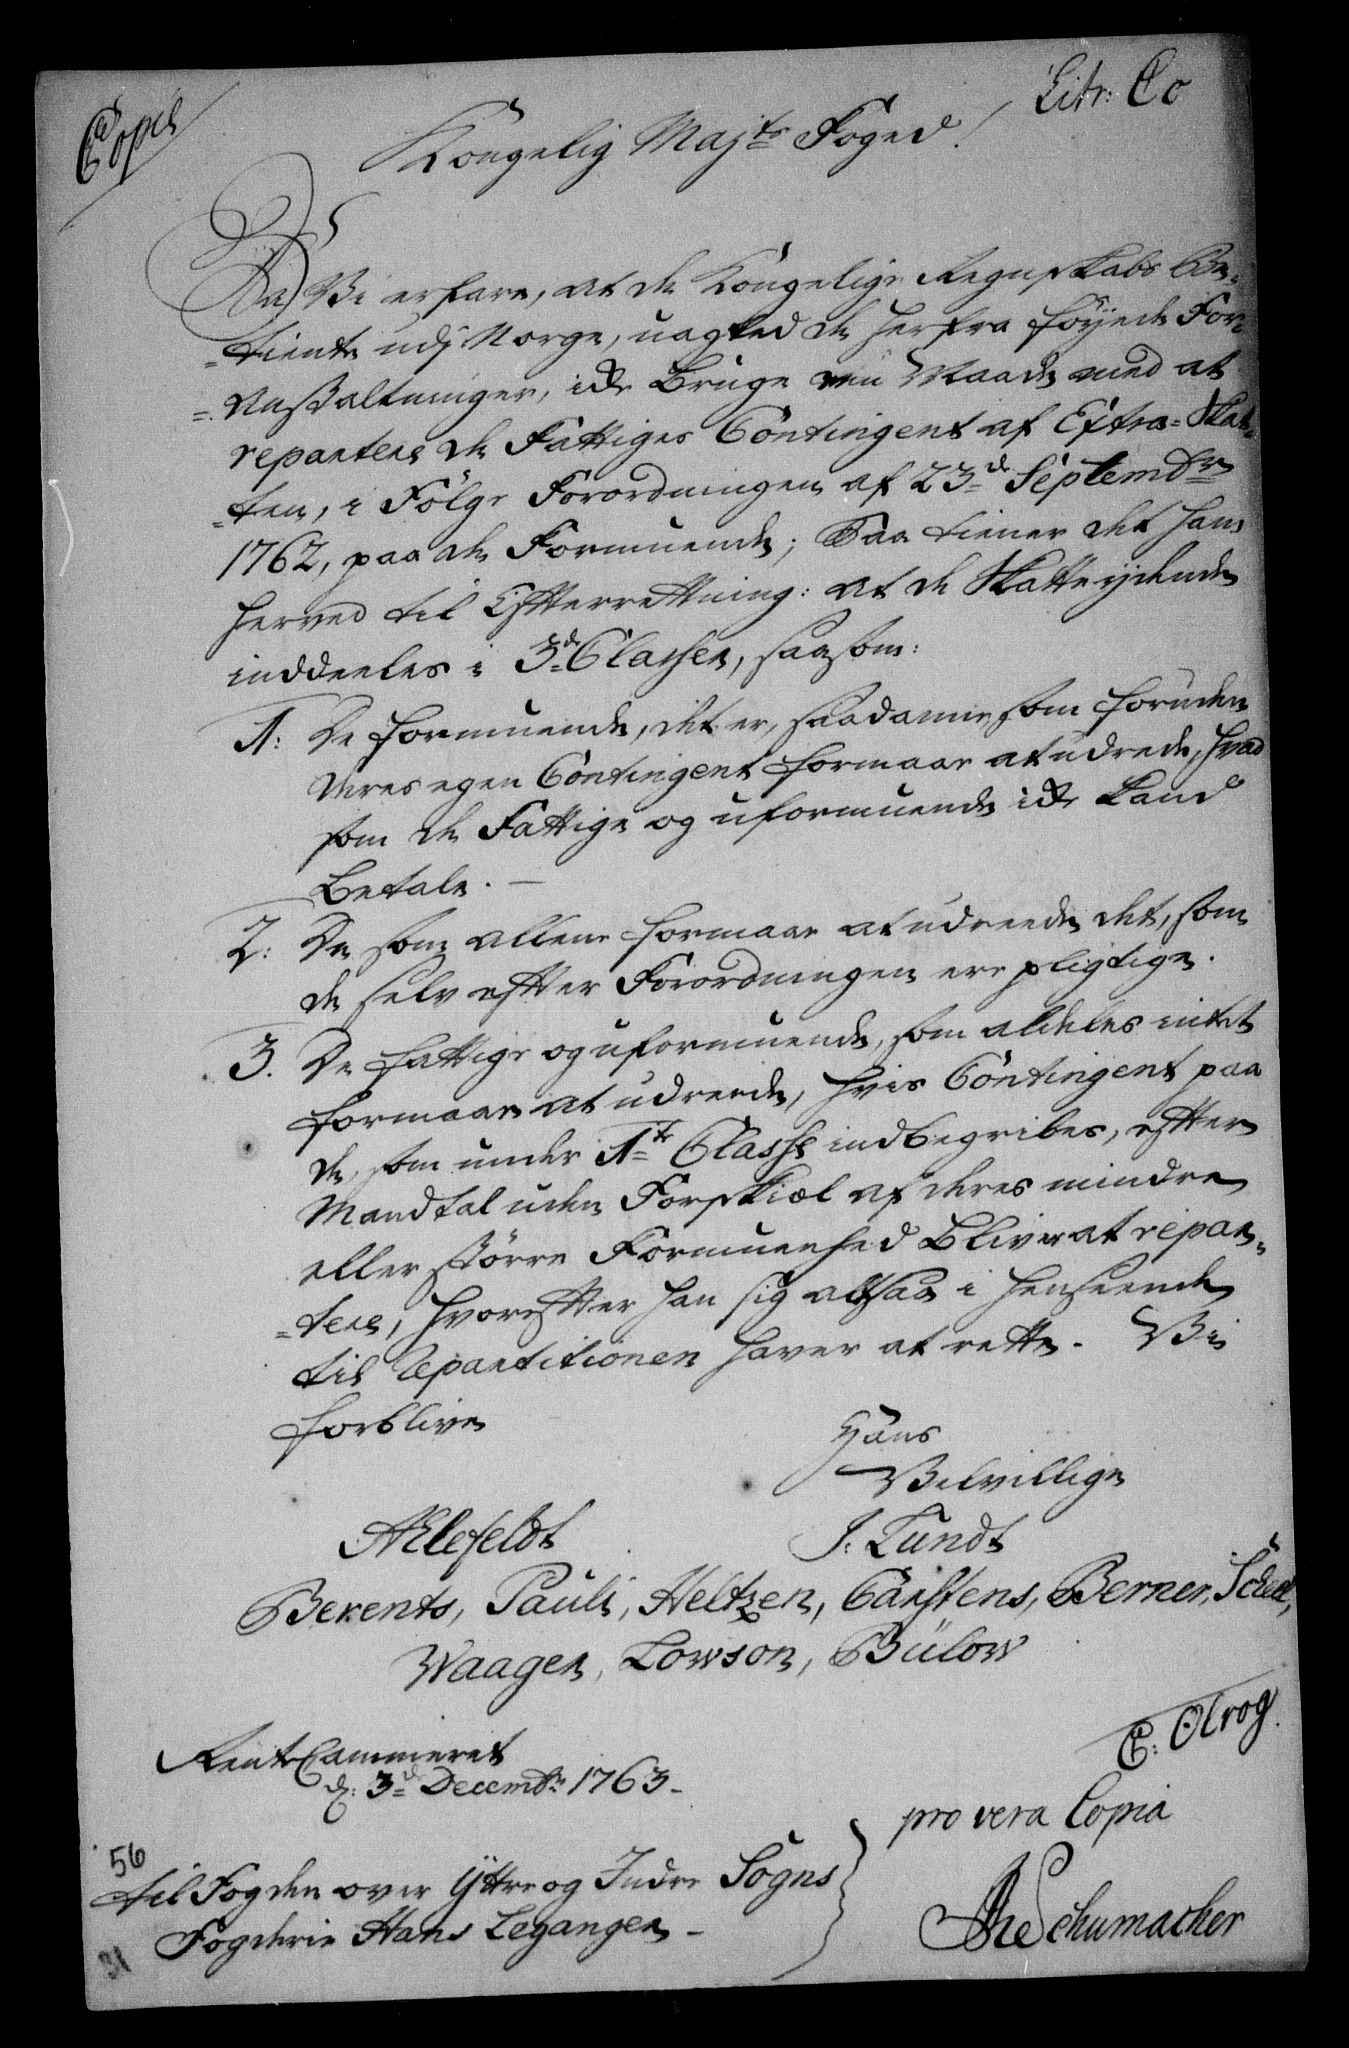 Litr: Co
Copie
Kongelig Majts Foged!
Da Vi erfare, at de Kongelige Regnskabs Be-
=tiente udj Norge, uagted de herfra föyede For-
=anstaltninger, icke bruge een Maade med at
repartere de Fattiges Contingent af Extra-Skat-
=ten, i Fölge Forordningen af 23de Septembr
1762, paa de Formuende; Saa tiener det ham
herved til Efterrettning: at de Skatteydende
inddeeles i 3de Classer, saasom:
1: De formuende, det er, saadanne som foruden
deres egen Contingent formaar at udrede, hvad
som de Fattige og uformuende icke kand
betale. —
2: De som allene formaar at udreede det, som
de selv efter Forordningen ere pligtige.
3. De fattige og uformuende, som aldeles intet
formaar at udreede, hvis Contingent paa
de, som under 1te Classe indbegribes, efter
Mandtal uden Forskiæl af deres mindre
eller större Formuenhed bliver at repar-
=tere, hvorefter han sig altsaa i Henseende
til Repartitionen haver at rette. Vi
forblive
Hans
Velvillige
Ahlefeldt J. Lundt
Berents, Pauli, Heltzen, Carstens, Berner, Scheel,
Waagen, Lowson, Bülow
E: Olrog.
RentCammeret
d: 3de Decembr 1763.
pro vera Copia
56
til Fogden over Yttre og Indre Sogns
Fogderie Hans Leganger.
Schumacher
31